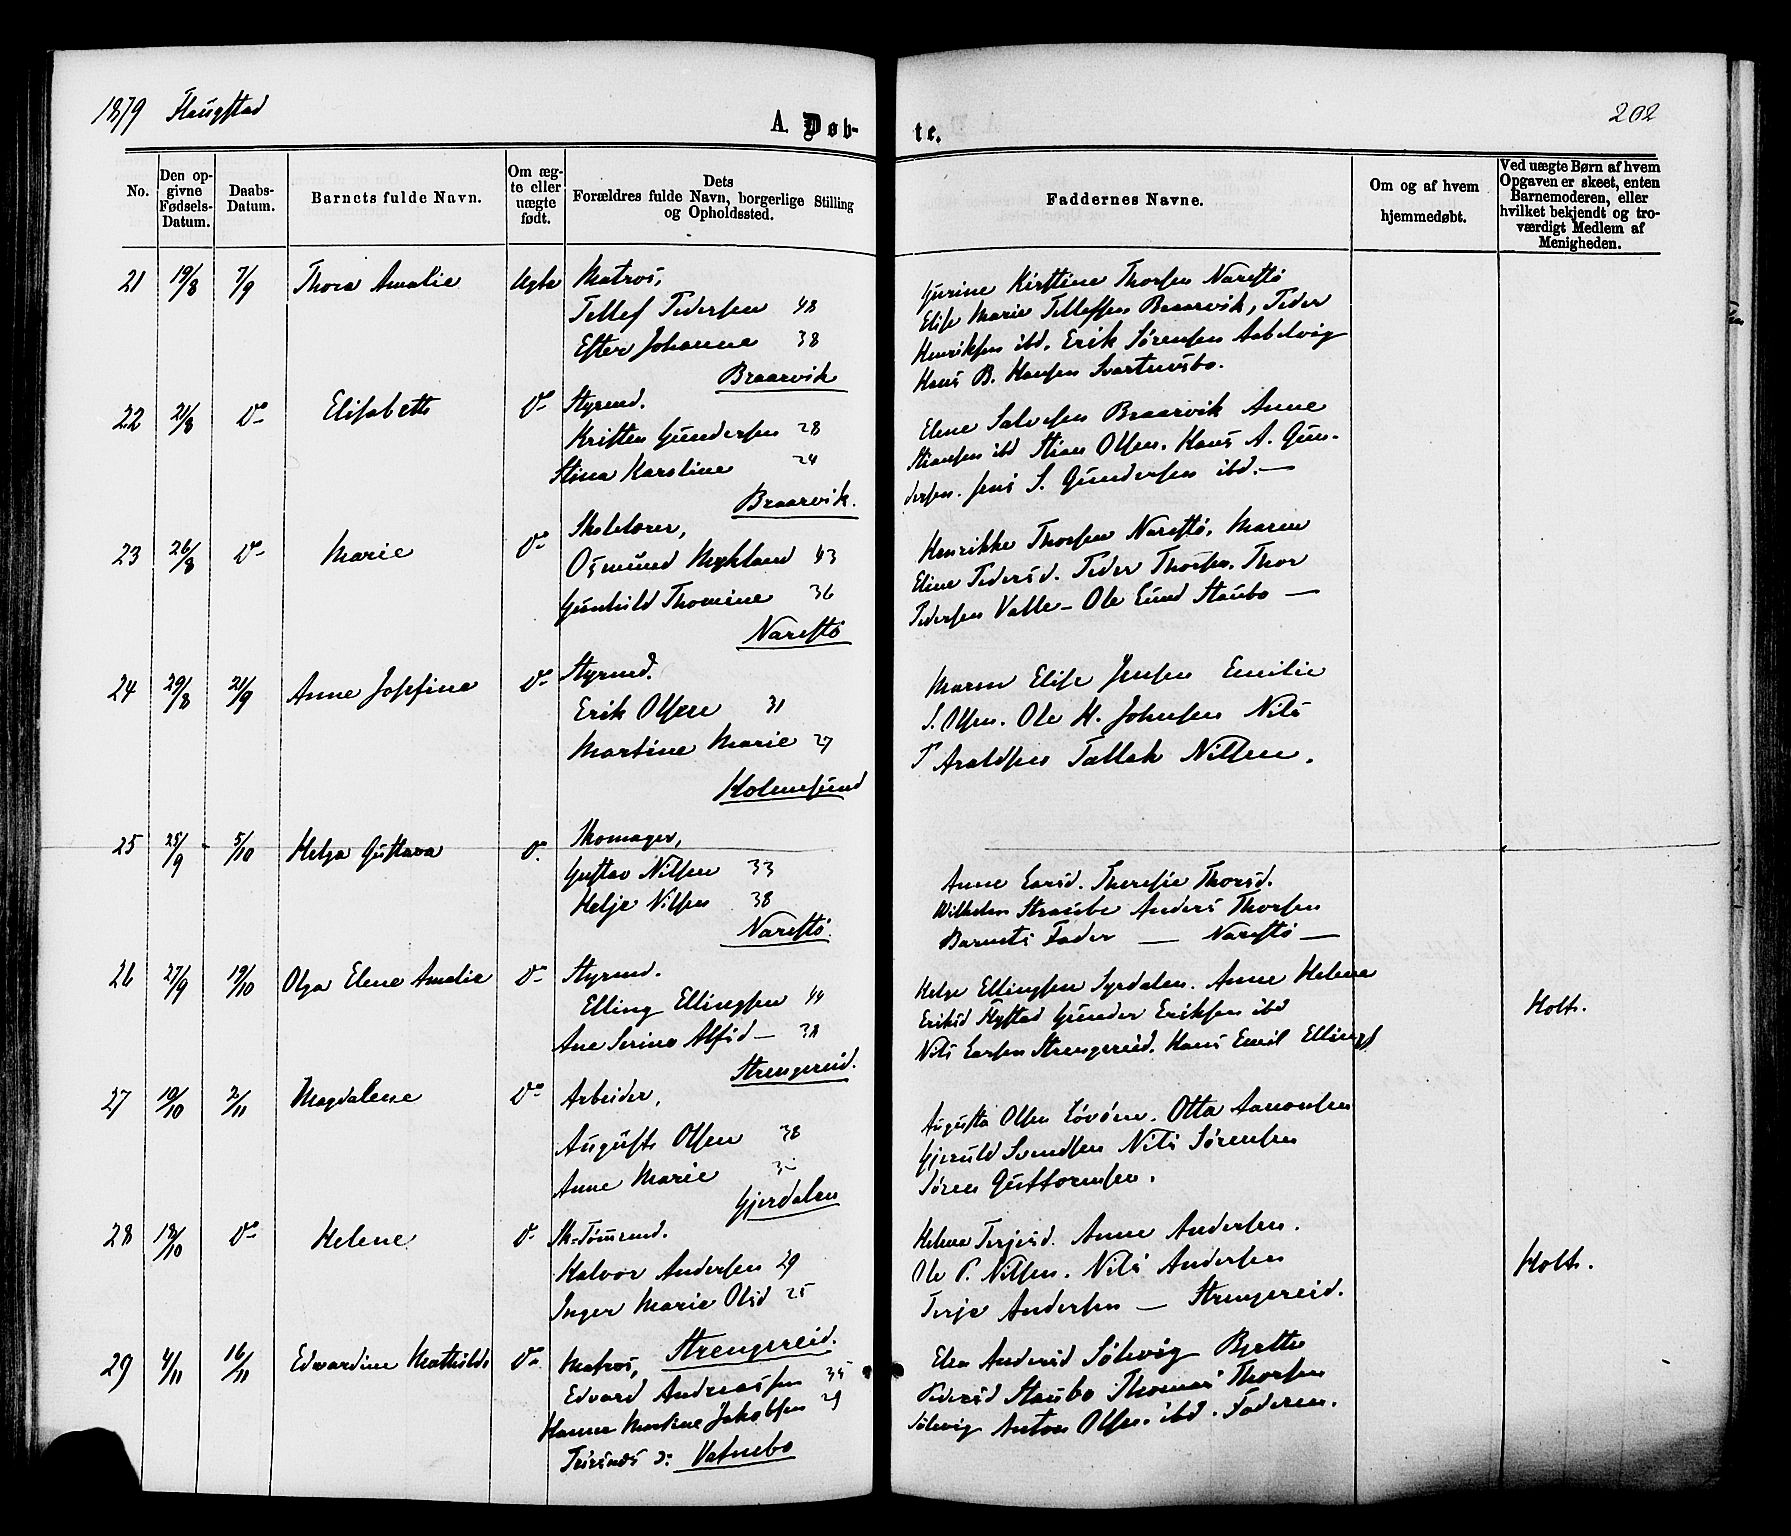 1879 Flaugstad
202
A. Døb-
te.
No.
Den op-
givne
Fødsels-
Datum.
Daabs-
Datum.
Barnets fulde Navn.
Om æg-
te eller
uægte
født.
Dets
Forældres fulde Navn, borgerlige Stilling
og Opholdssted.
Faddernes Navne.
Om og af hvem
hjemmedøbt.
Ved uægte Børn af hvem
Opgaven er skeet, enten
Barnemoderen, eller
hvilket bekjendt og tro-
værdigt Medlem af
Menigheden.
21 19/8 7/9 Thora Amalie Ægte Matros,
Tellef Pedersen 48
Ester Johanne 38
Braarvik
Gurine Kirstine Thorsen Narestø
Elise Marie Tellefsen Braarvik, Peder
Henriksen ibd. Erik Sørensen Aabelvig
Hans B. Hansen
22 21/8 Do Elisabeth Do Styrmd.
Kristen Gundersen 28
Stina Karoline 24
Braarvik.
Elene Salvesen Braarvik Anne
Stiansen ibd Stian Olsen. Hans A. Gun-
dersen. Jens S. Gundersen ibd.—
23 26/8 Do Marie Do Skolelærer,
Osmund Mykland 43
Gunhild Thomine 36
Narestø
Henrikke Thorsen Narestø, Maren
Eline Pedersd. Peder Thorsen. Thor
Pedersen Valle— Ole Lund Staubo—
24 29/8 21/9 Anne Josefine Do Styrmd.
Erik Olsen 31
Martine Marie 27
Kolmesund
Maren Elise Jensen Emilie
S. Olsen. Ole H. Johnsen Nils
T Araldsen Tallak Nilsen.
25 25/9 5/10 Helga Gustava Do Skomager,
Gustav Nilsen 33
Helje Nilsen 38
Narestø.
Anne Larsd. Theresie Thorsd.
Wilhelm Straube Anders Thorsen
Barnets Fader — Narestø—
26 27/9 19/10 Olga Elene Amalie Do Styrmd.
Elling Ellingsen 44
Ane Serine Alfsd— 38
Strengereid.
Helge Ellingsen Syrdalen. Anne Helene
Eriksd Gunder Eriksen ibd
Nils Larsen Strengereid. Hans Emil Ellings
Holt.
27 19/10 2/11 Magdalene Do Arbeider,
August Olsen 38
Anne Marie
Gjerdalen
Augusta Olsen Løvøen. Otta Aanonsen
Gjeruld Svendsen Nils Sørensen
Søren Guttormsen.
28 18/10 Do Helene Do Sk-Tømrmd.
Halvor Andersen 29
Inger Marie Olsd 25
Strengereid.
Helene Terjesd. Anne Andersen.
Ole P. Nilsen. Nils Andersen
Terje Andersen — Strengereid.
Holt.
29 4/11 16/11 Edvardine Mathilde Do Matros,
Edvard Andreassen 35
Hanne Martine Jakobsen 29
Vatnebo
Elen Andersd Sølevig Bertte
Pedersd Staubo Thomas Thorsen
Sølevig Anton Olsen. ibd. Faderen.